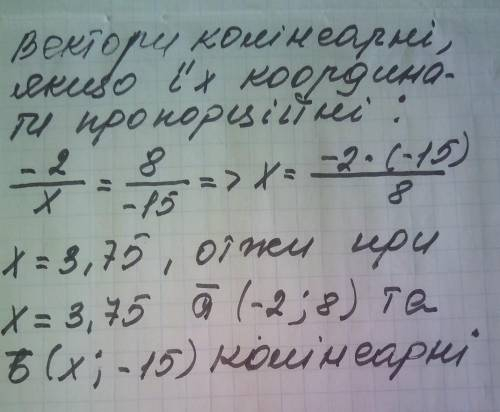 Вектори колінеарні,
якщо їх координа-
ти пропорційні :
-2/x = 8/-15 => x = -2·(-15)/8
x = 3,75 , отжи при
x = 3,75 a̅ (-2; 8) та
b̅ (x; -15) колінеарні